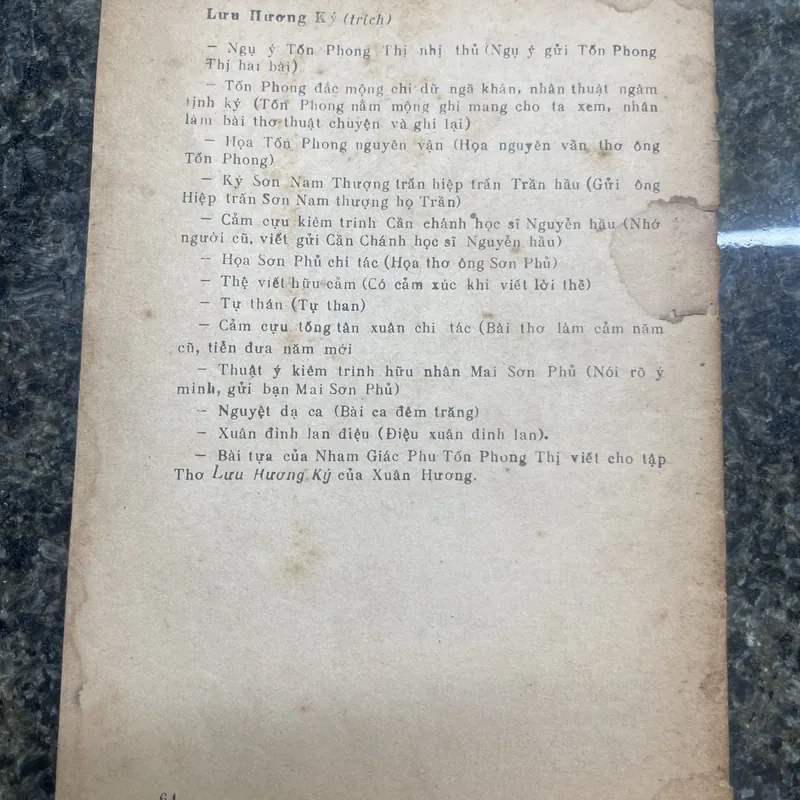 Lưu Hương Ký (trích)
— Ngụ ý Tốn Phong Thị nhị thủ (Ngụ ý gửi Tốn Phong
Thị hai bài)
— Tốn Phong đắc mộng chi dữ ngã khán, nhân thuật ngâm
tịnh ký (Tốn Phong nằm mộng ghi mang cho ta xem, nhân
làm bài thơ thuật chuyện và ghi lại)
— Họa Tốn Phong nguyên vận (Họa nguyên vần thơ ông
Tốn Phong)
— Ký Sơn Nam Thượng trấn hiệp trấn Trần hầu (Gửi ông
Hiệp trấn Sơn Nam thượng họ Trần)
— Cảm cựu kiêm trình Cần chánh học sĩ Nguyễn hầu (Nhớ
người cũ, viết gửi Cần Chánh học sĩ Nguyễn hầu)
— Họa Sơn Phủ chi tác (Họa thơ ông Sơn Phủ)
— Thệ viết hữu cảm (Có cảm xúc khi viết lời thề)
— Tự thán (Tự than)
— Cảm cựu tống tân xuân chi tác (Bài thơ làm cảm năm
cũ, tiễn đưa năm mới
— Thuật ý kiêm trình hữu nhân Mai Sơn Phủ (Nói rõ ý
mình, gửi bạn Mai Sơn Phủ)
— Nguyệt dạ ca (Bài ca đêm trăng)
— Xuân đình lan điệu (Điệu xuân đình lan).
— Bài tựa của Nham Giác Phu Tốn Phong Thị viết cho tập
Thơ Lưu Hương Ký của Xuân Hương.
64